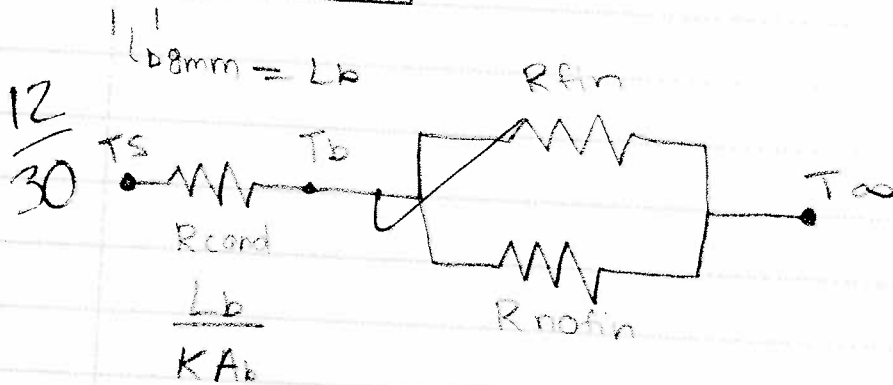 Lb 8mm = Lb
12
30
Ts
Rcond
Lb
KAb
Tb
Rfin
Rnofin
T∞